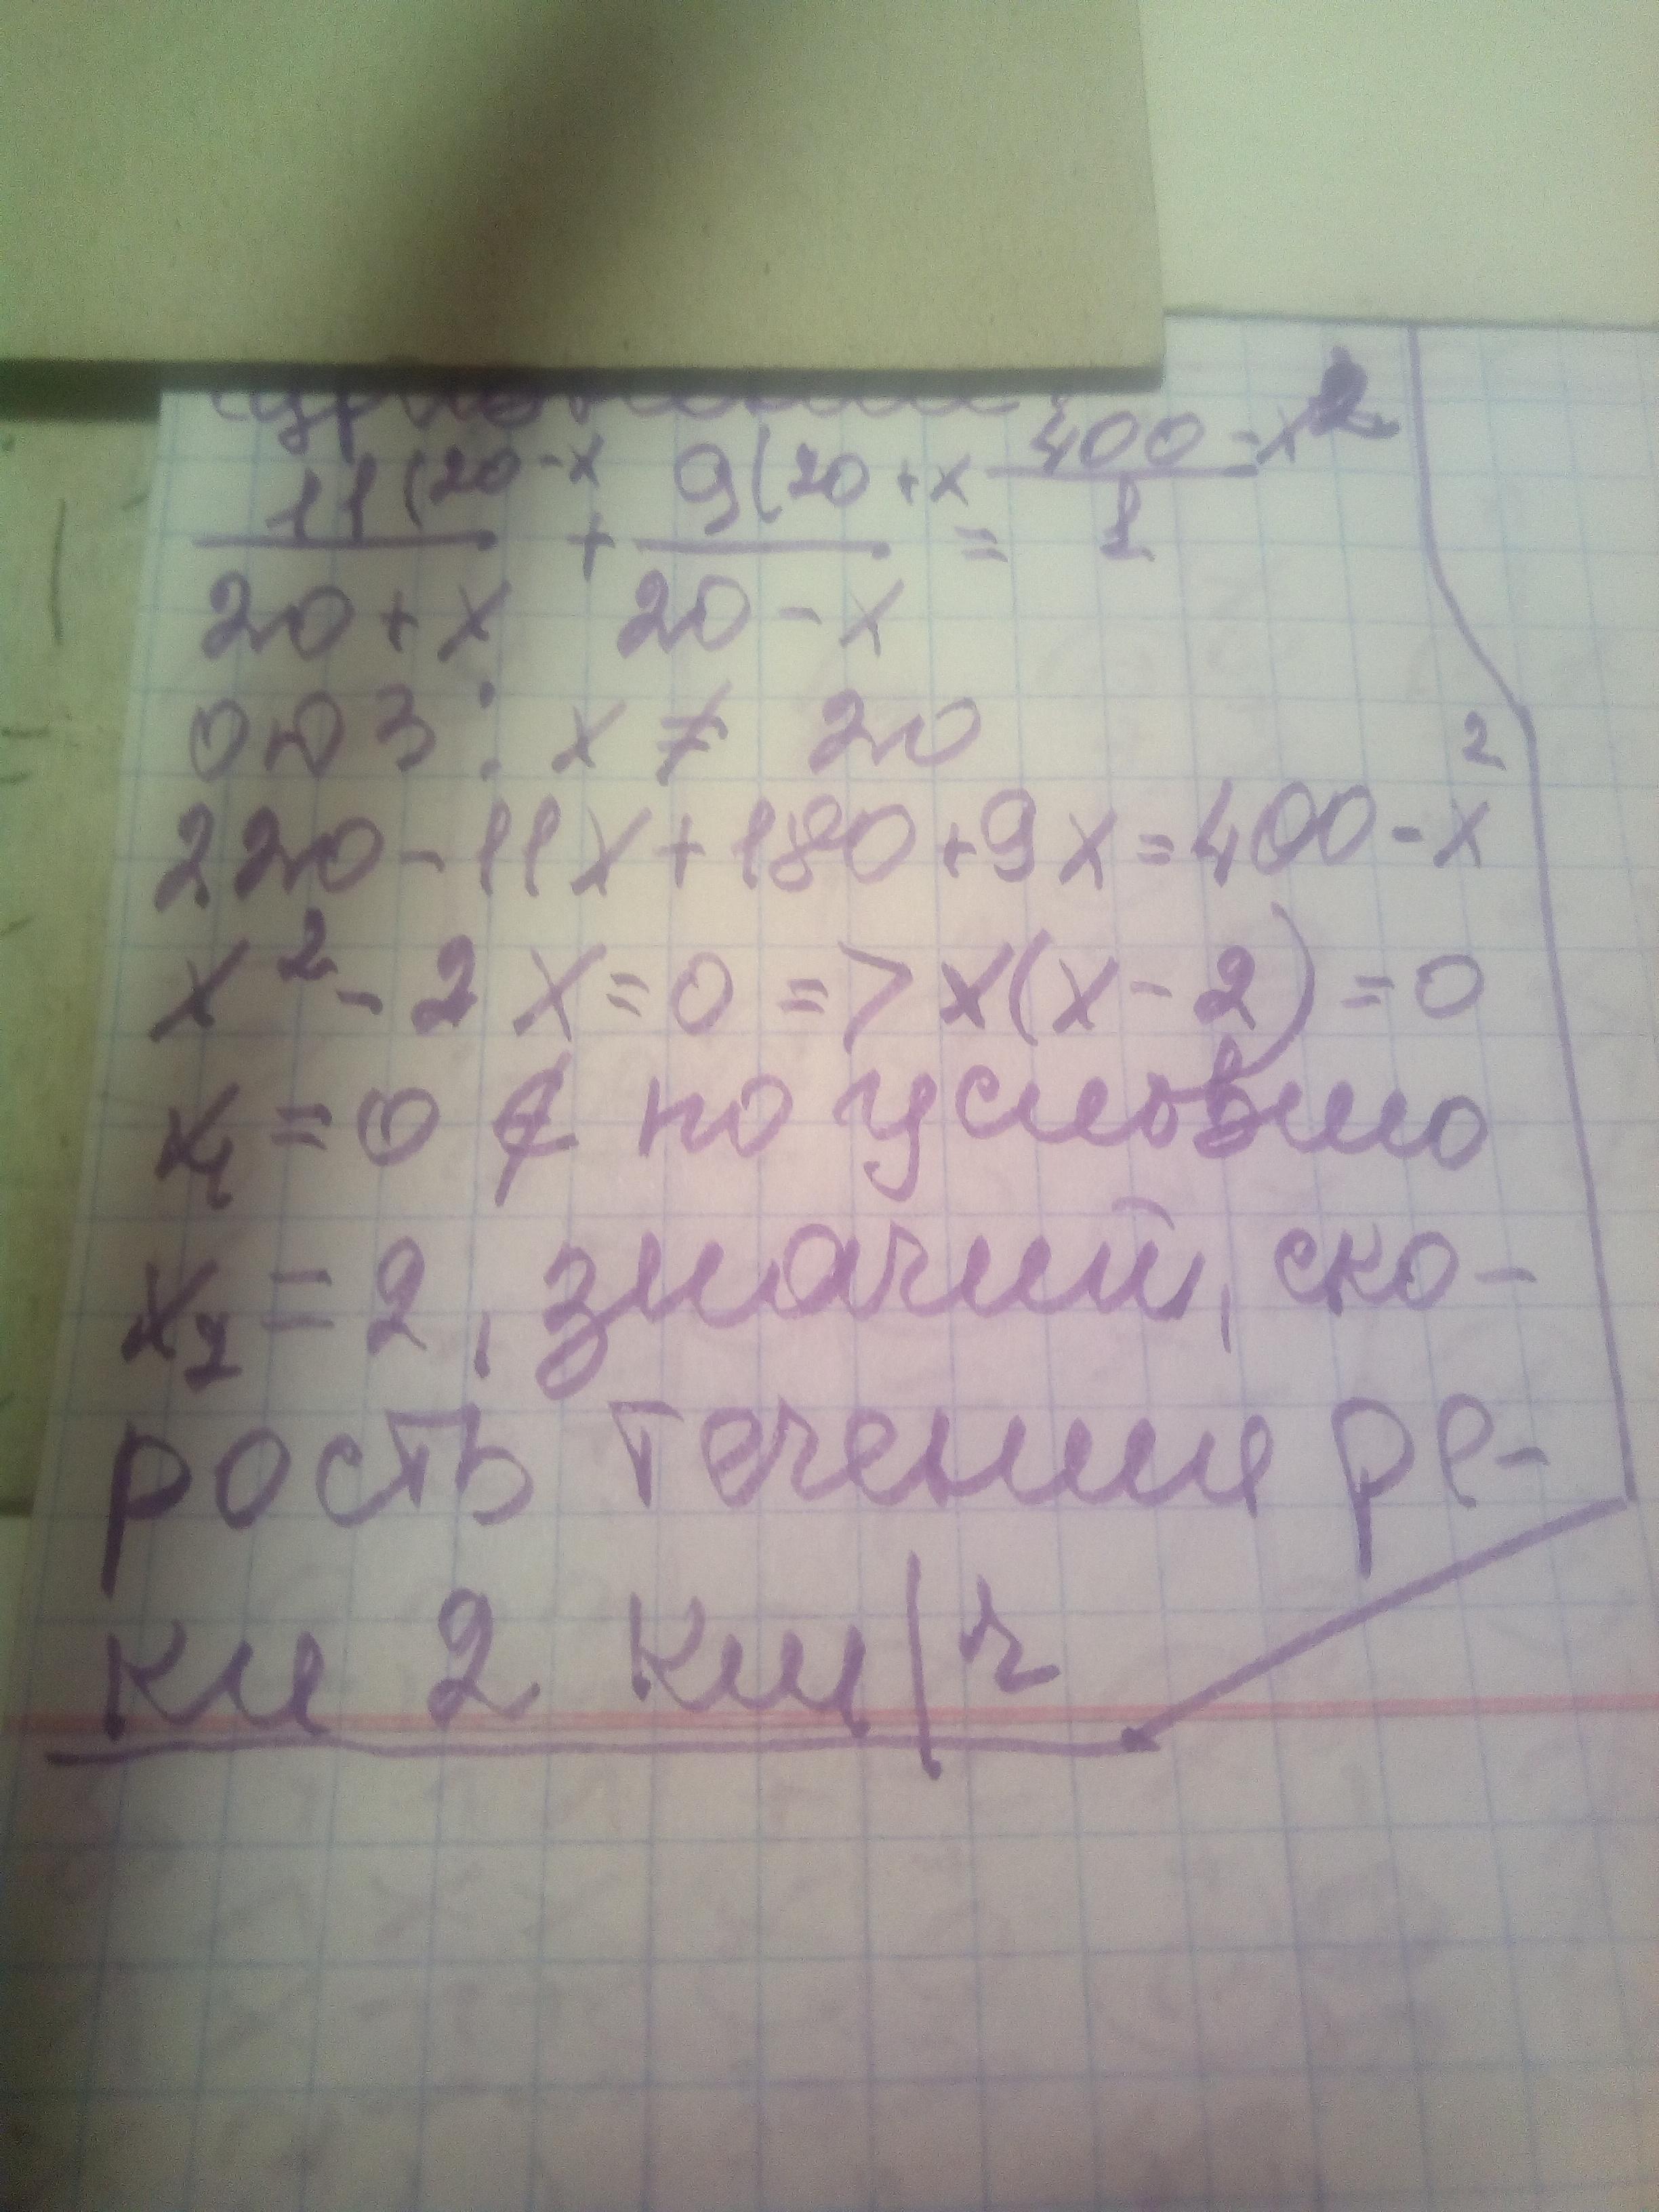 11(20-x 9(20+x 400-x²
20+x + 20-x = 1
одз: x ≠ 20
220-11x+180+9x=400-x²
x²-2x=0 => x(x-2)=0
x₁=0 ∉ по условию
x₂=2, значит, ско-
рость течения ре-
ки 2 км/ч